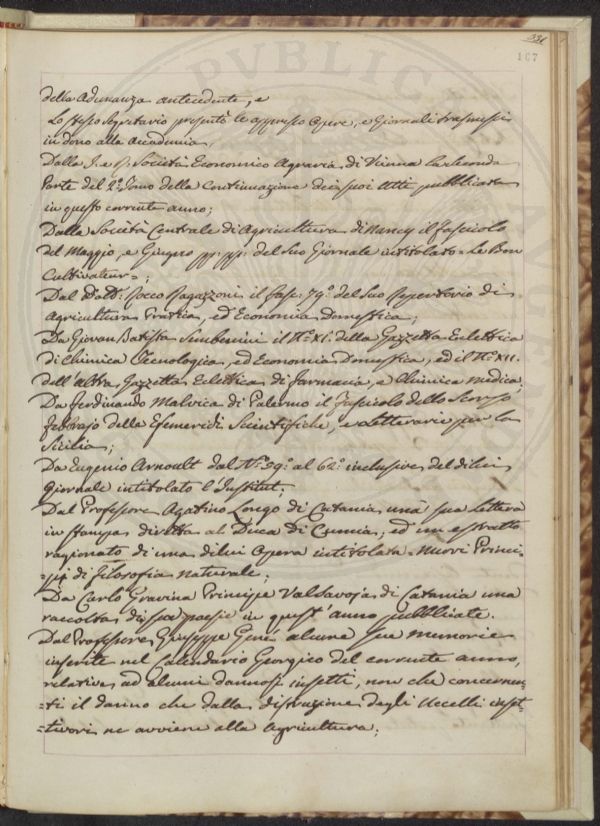 331
167
della Adunanza antecedente, e
Lo stesso Segretario presentò le appresso Opere, e Giornali trasmessi
in dono alla Accademia.
Dalla I. e R. Società Economico Agraria di Vienna la Seconda
Parte del 2.º Tomo della Continuazione dei suoi Atti pubblicata
in questo corrente anno;
Dalla Società Centrale di Agricoltura di Nancy il fascicolo
del Maggio, e Giugno pp: pp: del Suo Giornale intitolato = Le Bon
Cultivateur =;
Dal Dott: Rocco Ragazzoni il fasc: 79.º del Suo Repertorio di
Agricoltura Pratica, ed Economia Domestica;
Da Giovan Batista Sembenini il N.º XI. della Gazzetta Eclettica
di Chimica Tecnologica, ed Economia Domestica, ed il N.º XII.
dell'altra Gazzetta Eclettica di farmacia, e Chimica Medica;
Da Ferdinando Malvica di Palermo il fascicolo dello Scorso
febbrajo delle Efemeridi Scientifiche, e Letterarie per la
Sicilia;
Da Eugenio Arnoult dal N.º 59.º al 62.º inclusive del di lui
Giornale intitolato l'Institut;
Dal Professore Agatino Longo di Catania una sua lettera
in stampa diretta al Duca di Cumia, ed un estratto
ragionato di una di lui Opera intitolata = Nuovi Princi-
=pii di Filosofia naturale;
Da Carlo Gravina Principe Valsavoja di Catania una
raccolta di sue poesie in quest'anno pubblicate.
Dal Professore Giuseppe Gené alcune sue memorie
inserite nel Calendario Georgico del corrente anno,
relative ad alcuni dannosi insetti, non che concernen-
=ti il danno che dalla distruzione degli Uccelli inset-
=tivori ne avviene alla Agricoltura;